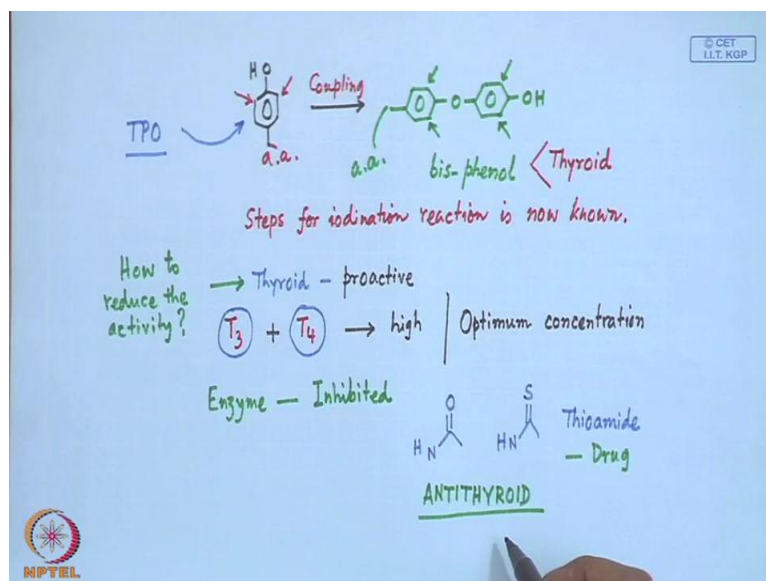 © CET
I.I.T. KGP
HO
Coupling
TPO
O
OH
a.a.
a.a.
bis-phenol
Thyroid
Steps for iodination reaction is now known.
How to
reduce the
activity?
Thyroid - proactive
T3 + T4 → high | Optimum concentration
Enzyme — Inhibited
O
HN
S
HN
Thioamide
— Drug
ANTITHYROID
NPTEL